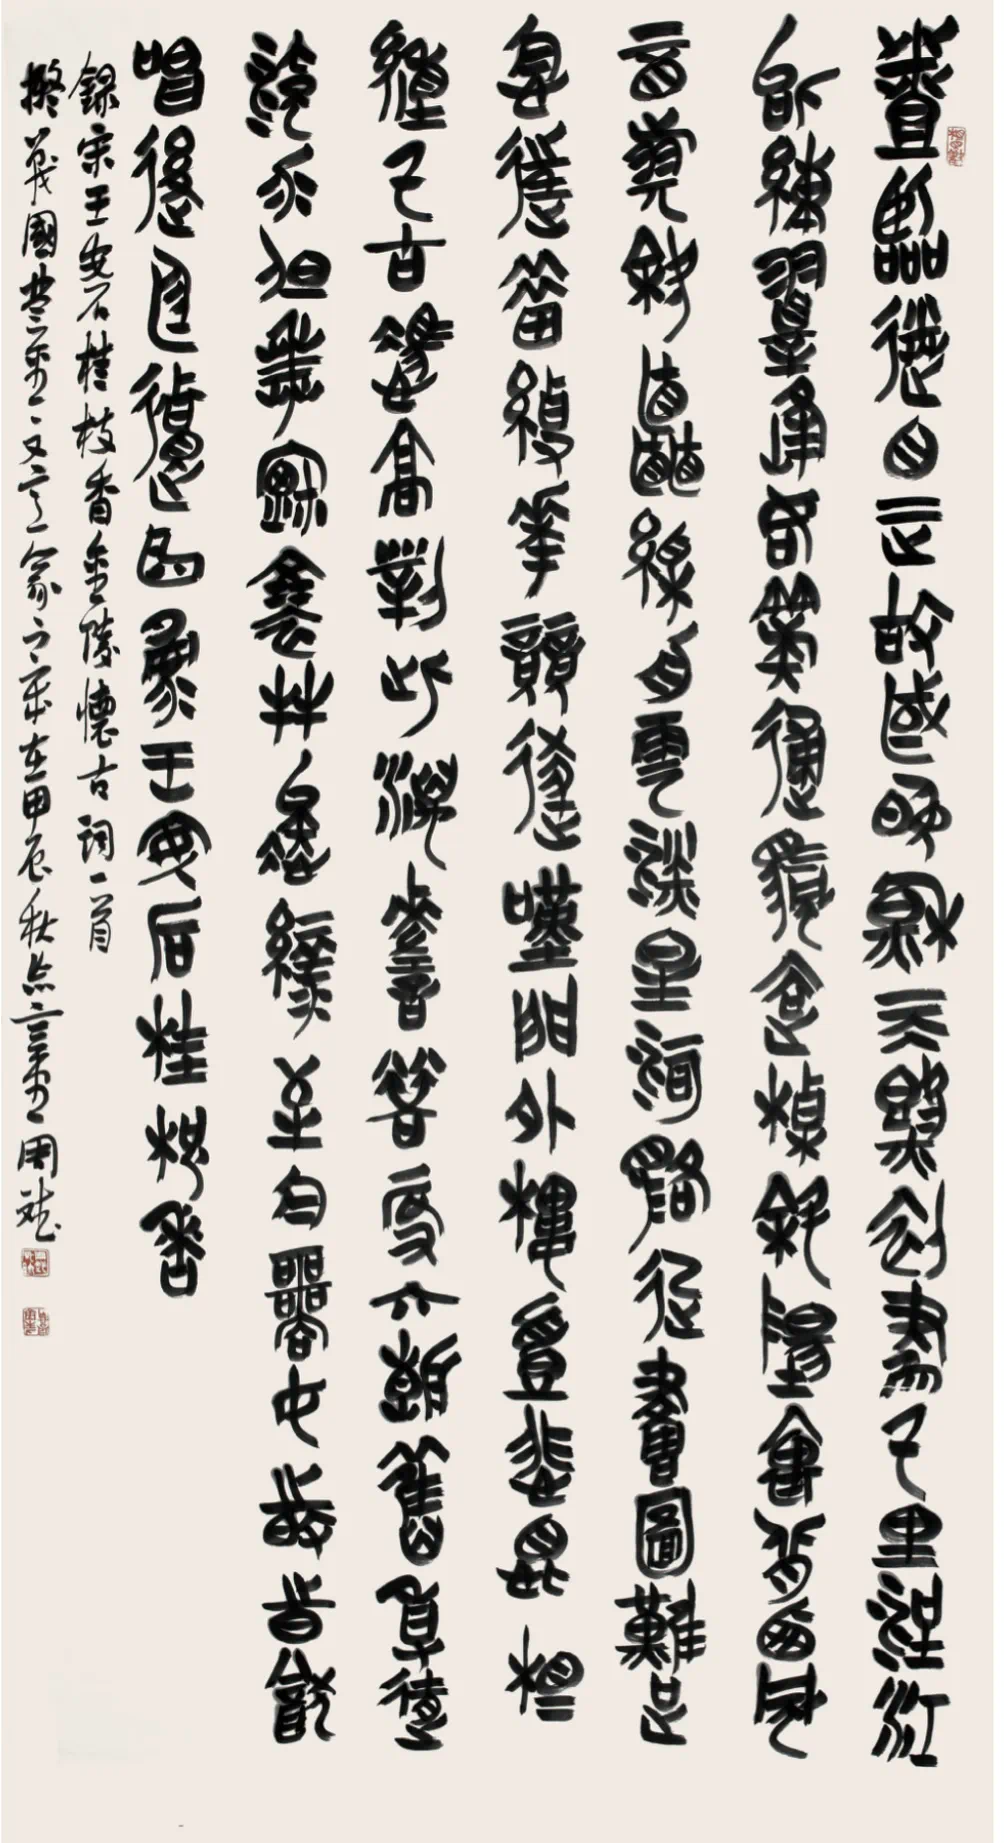 登臨送目正故國晚秋天氣初肅千里澄江
似練翠峰如簇征帆去棹斜陽裏背西風
酒旗斜矗綵舟雲淡星河鷺起畫圖難足
念往昔繁華競逐嘆門外樓頭悲恨相
續千古憑高對此漫嗟榮辱六朝舊事隨
流水但寒煙衰草凝綠至今商女時時猶
唱後庭遺曲王安石桂枝香
錄宋王安石桂枝香金陵懷古詞一首
擬戰國楚金文意在甲辰秋周斌